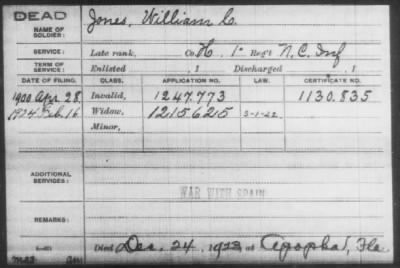 DEAD
NAME OF SOLDIER: Jones, William C.
SERVICE: Late rank, Co. H, 1st Reg't N.C. Inf
TERM OF SERVICE: Enlisted , 1 Discharged , 1
DATE OF FILING. CLASS. APPLICATION NO. CERTIFICATE NO.
1900 Apr 28. Invalid, 1247.773 1130.835
1924 Feb. 16 Widow, 1215.625 3-1-22
Minor,
ADDITIONAL SERVICES:
WAR WITH SPAIN
REMARKS:
Died Dec. 24, 1923 at Fla.